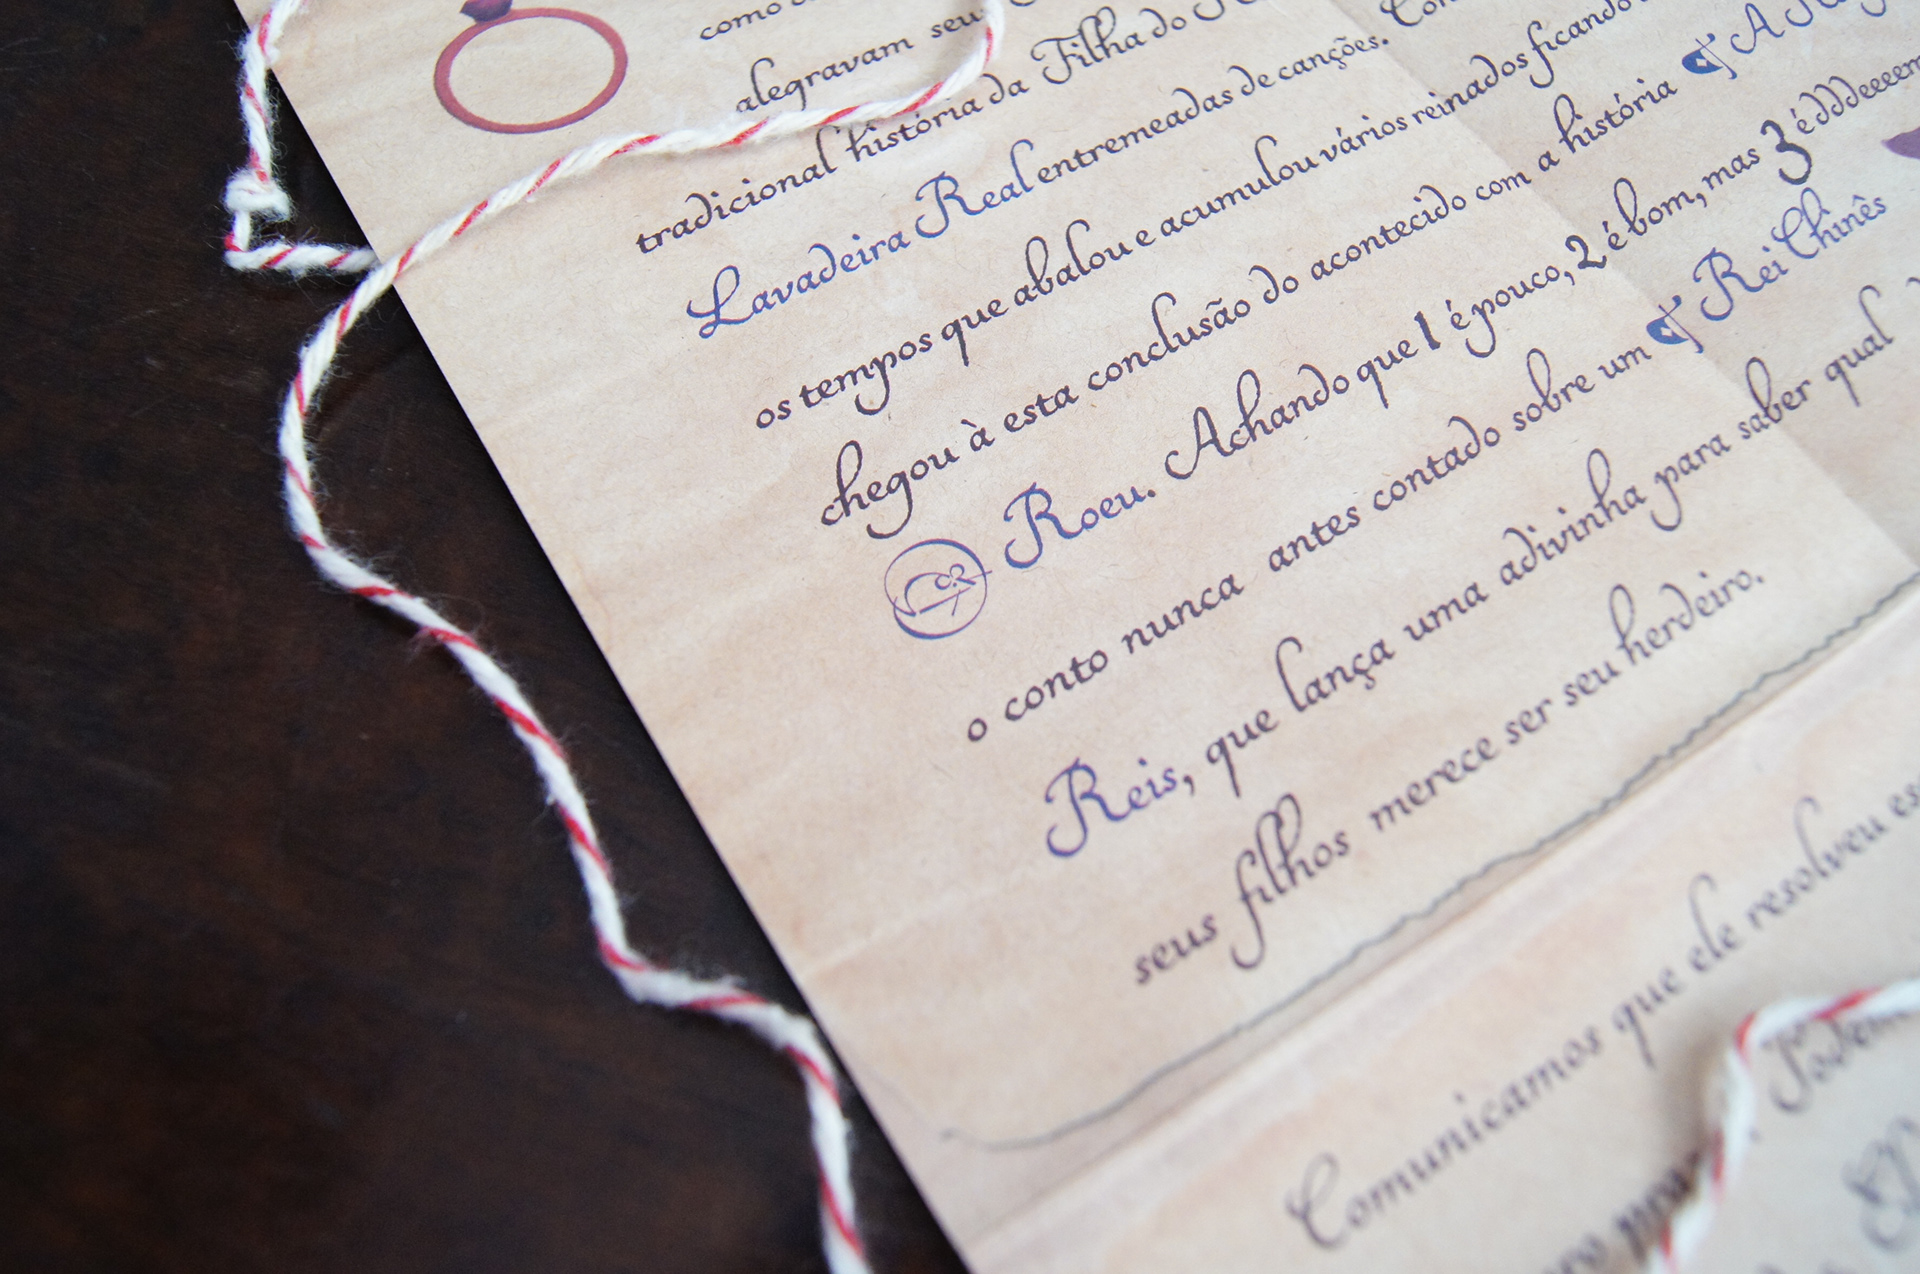 como
alegravam seu
tradicional história da Filha do
Lavadeira Real entremeadas de canções.
os tempos que abalou e acumulou vários reinados ficando
chegou à esta conclusão do acontecido com a história A
Roeu. Achando que 1 é pouco, 2 é bom, mas 3 édddeeeem
o conto nunca antes contado sobre um Rei Chinês
Reis, que lança uma adivinha para saber qual
seus filhos merece ser seu herdeiro.
Comunicamos que ele resolveu